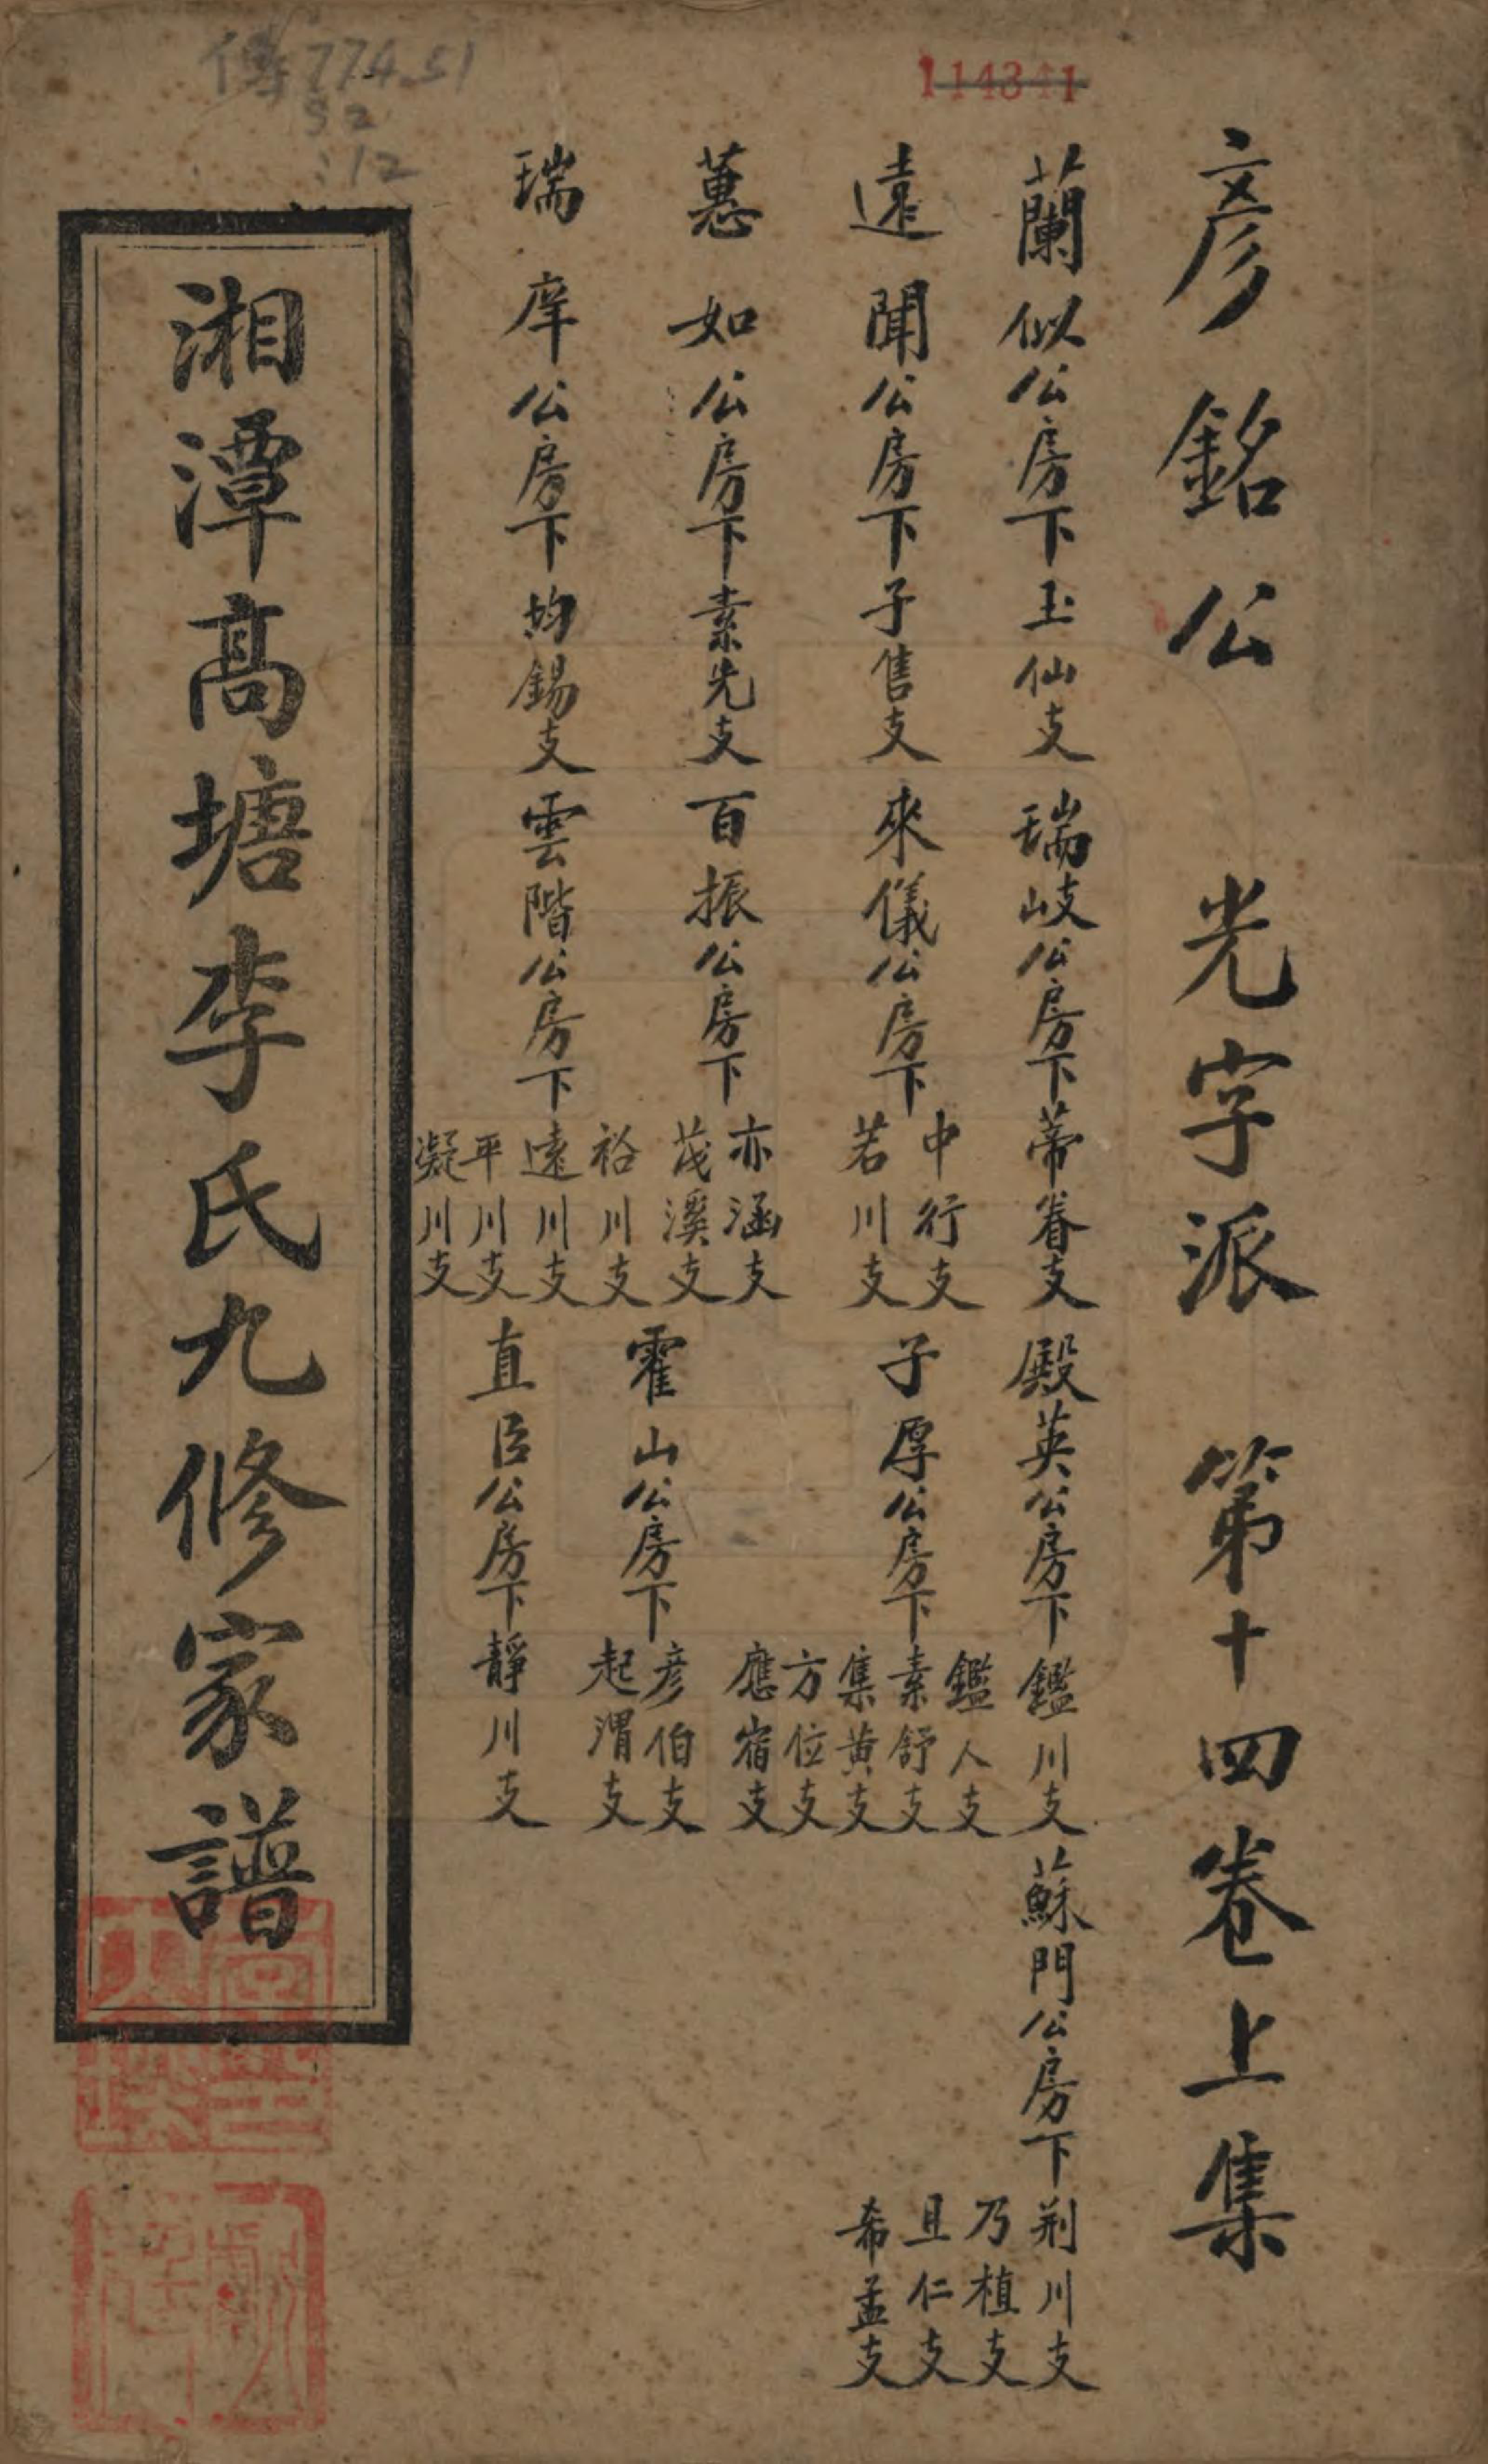 彥銘公 光字派 第十四卷上集
蘭似公房下玉仙支 瑞岐公房下蒂眷支 殿英公房下鑑川支 蘇門公房下荆川支
乃植支
且仁支
希孟支
鑑人支
遠聞公房下子售支 來儀公房下中行支
若川支
子厚公房下素舒支
集黄支
方位支
應宿支
蕙如公房下素先支 百振公房下亦涵支
茂溪支
霍山公房下彦伯支
起渭支
瑞庠公房下均錫支 雲階公房下裕川支
遠川支
平川支
凝川支
直臣公房下靜川支
湘潭高塘李氏九修家譜
傳774.51
52
:12
114341